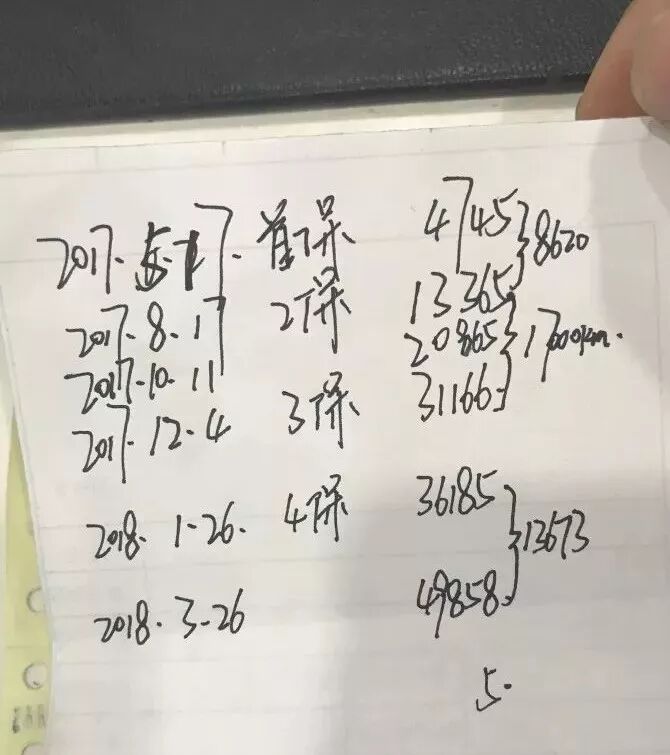 2017.5.17. 首保 4745
8620
2017.8.17 2保 13365
2017.10.11 20865
17800km.
2017.12.4 3保 31166
2018.1.26. 4保 36185
13673
2018.3.26 49858
5.